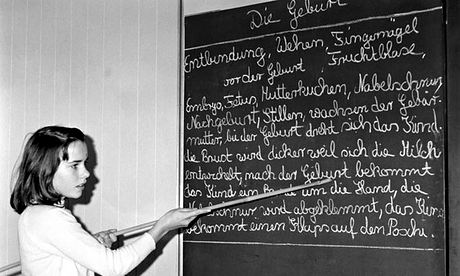 Die Geburt
Entbindung, Wehen, Fingernägel
vor der Geburt Fruchtblase,
Embryo, Fetus, Mutterkuchen, Nabelschnur,
Nachgeburt, Stillen, wachsen der Gebär-
mutter, bei der Geburt dreht sich das Kind.
die Brust wird dicker weil sich die Milch
entwickelt, nach der Geburt bekommt
das Kind ein um die Hand, die
Nabelschnur wird abgeklemmt, das Kind
bekommt einen auf den